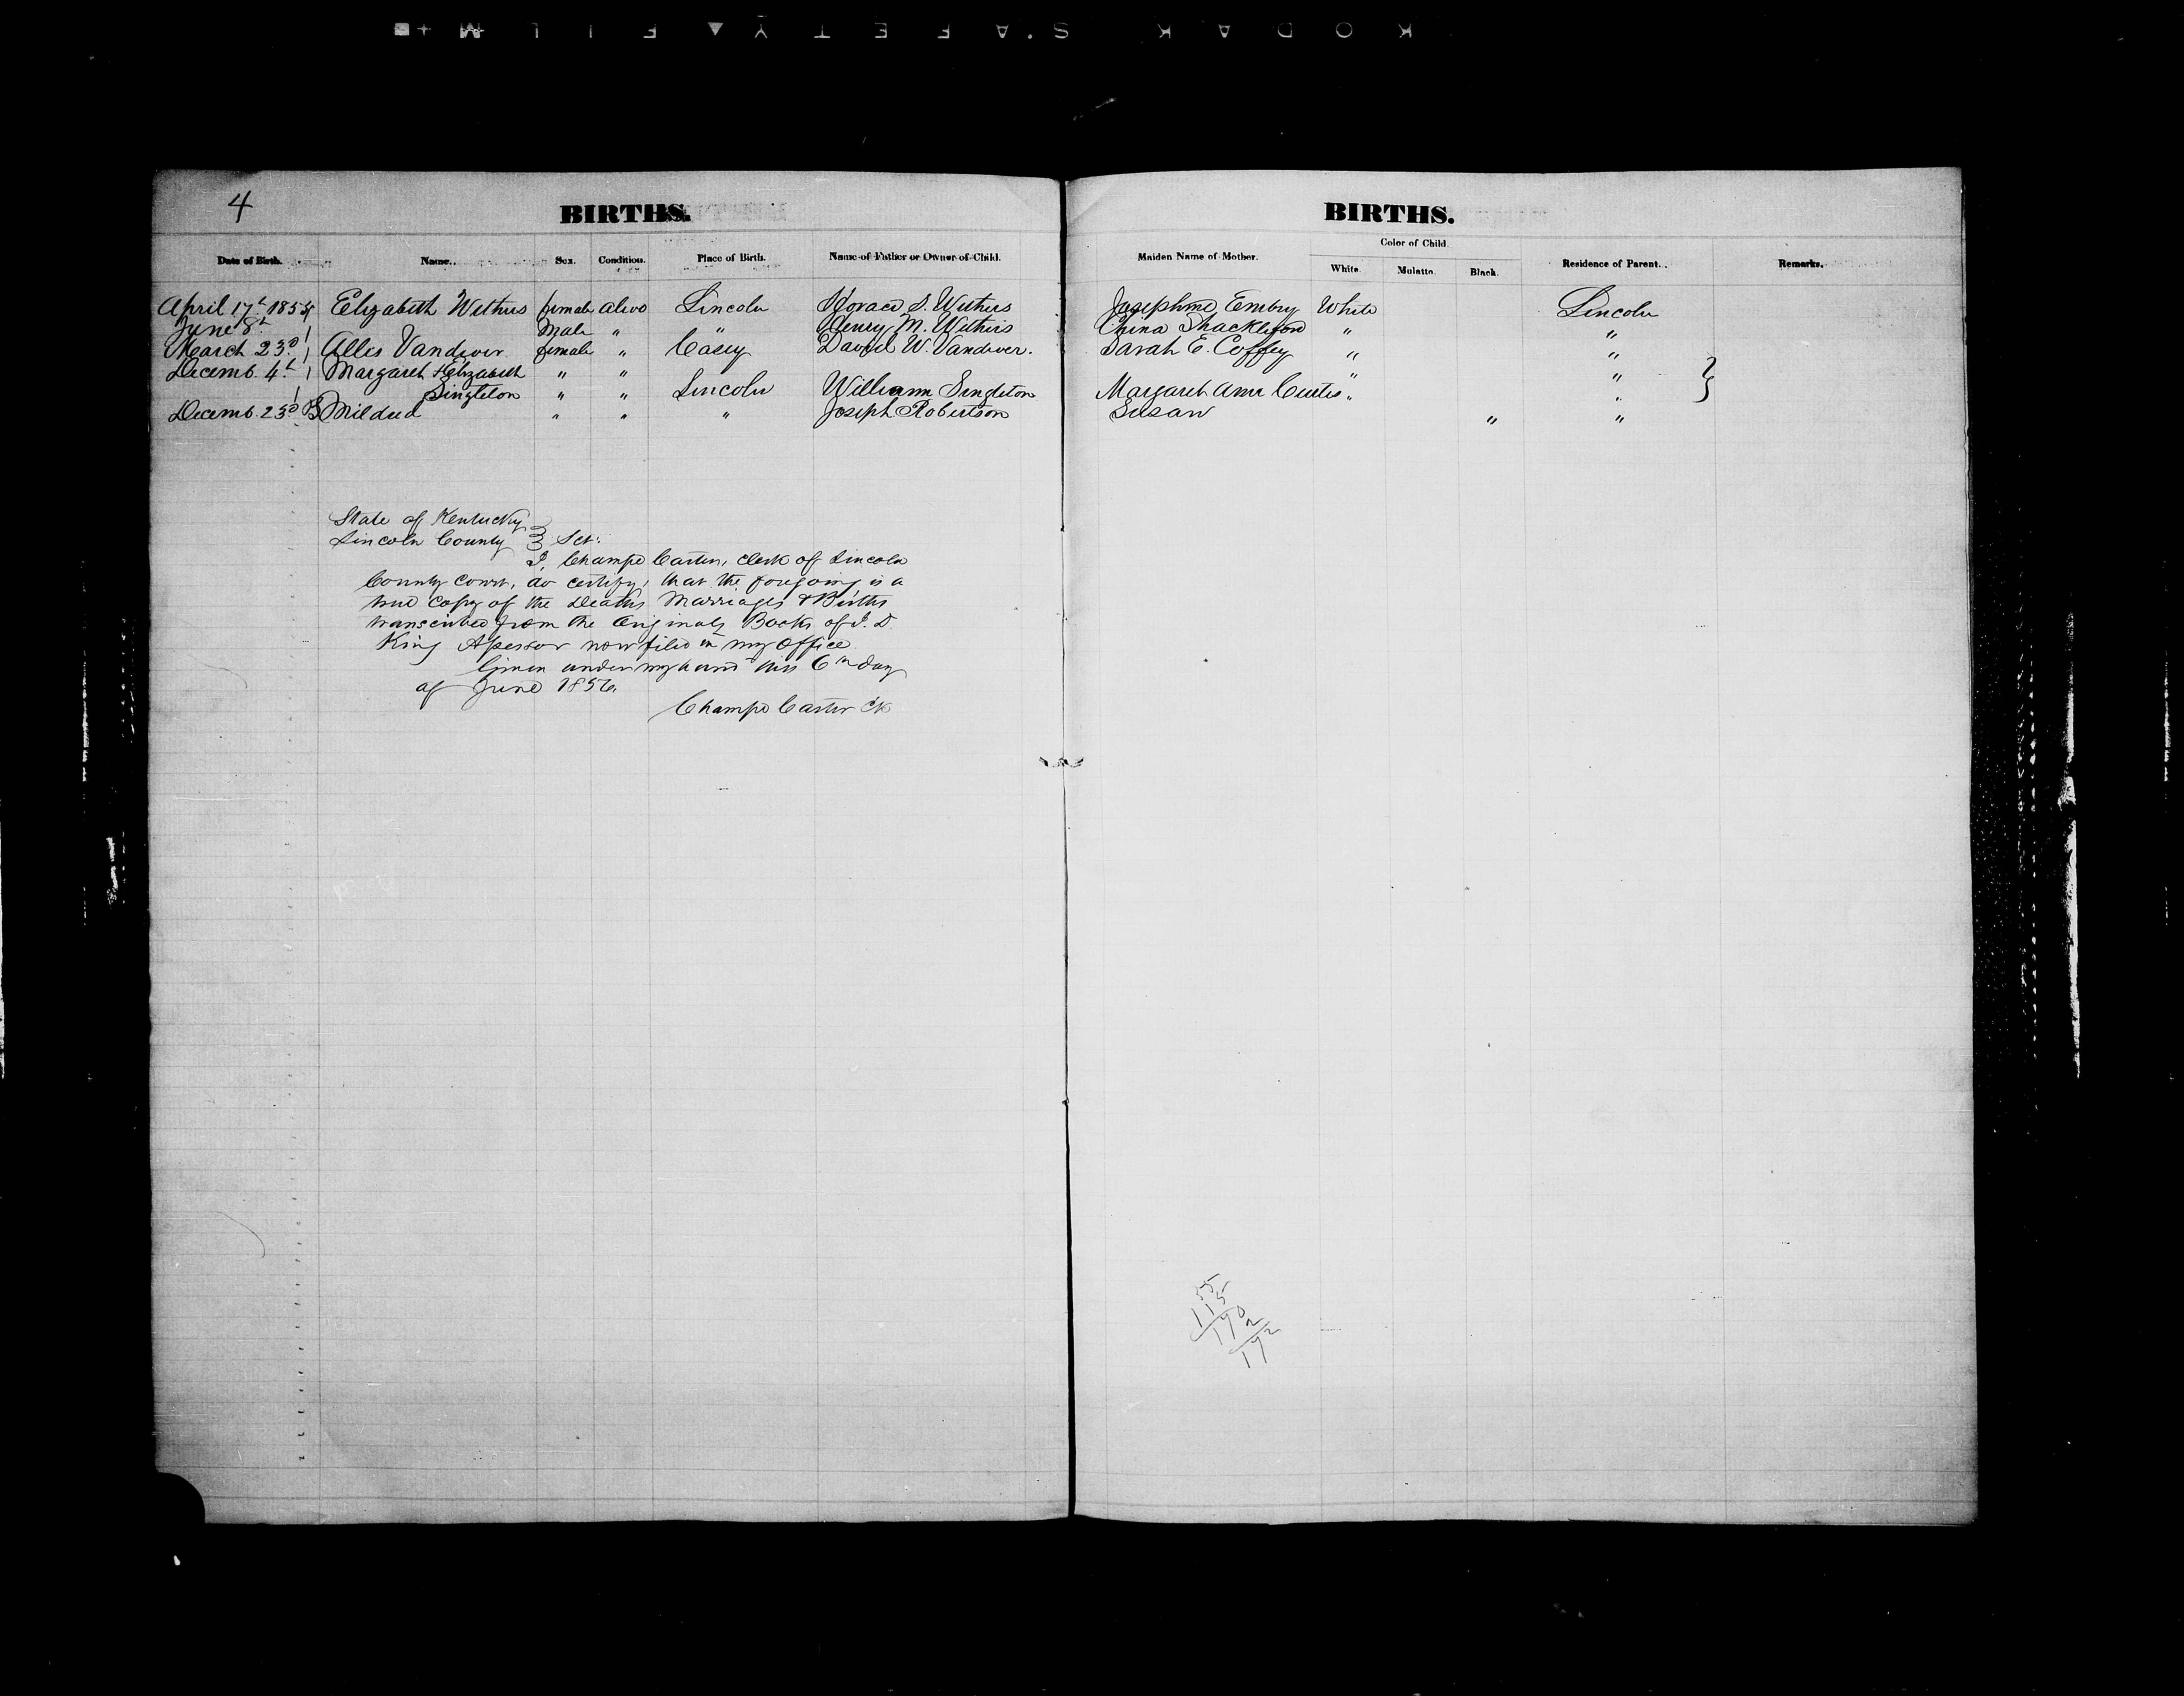 KODAK S.AFETY FILM
4
BIRTHS. BIRTHS.
Date of Birth. Name. Sex. Condition. Place of Birth. Name of Father or Owner of Child. Maiden Name of Mother. Color of Child. White. Mulatto. Black. Residence of Parent. Remarks.
April 17th 1855 Elizabeth Withers female alive Lincoln Horace S. Withers Josephine Embry White Lincoln
June 8th " Male " " Henry M. Withers China Shackleford " "
March 23d " Alles Vandiver female " Casey David W. Vandiver. Sarah E. Coffey " "
Decemb. 4th " Margaret Elizabeth " " " "
Singleton " " Lincoln William Singleton Margaret Ann Curtis " "
Decemb. 23d Mildred " " " Joseph Robertson Susan " "
State of Kentucky
Lincoln County } Sct:
I, Champe Carter, Clerk of Lincoln
County Court, do certify, that the foregoing is a
true copy of the Deaths Marriages & Births
transcribed from the Originals Books of J. D.
King Assessor now filed in my office
Given under my hand this 6th day
of June 1856.
Champe Carter Ck
55
115
170
2
172